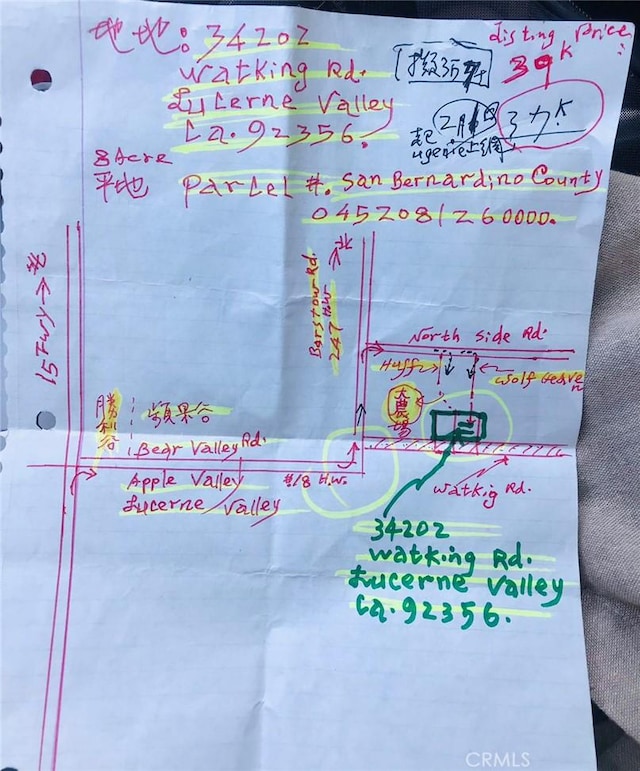 地地: 34202
Watking Rd.
Lucerne Valley
Ca. 92356.
Listing Price:
39K
2月
3万K
8 Acre
平地
Parcel #. San Bernardino County
0452081260000.
15 Fwy → 北
北
Barstow Rd.
247 H.W
North Side Rd.
Huff
Wolf
大農場
勝利谷
蘋果谷
Bear Valley Rd.
Apple Valley
Lucerne Valley
#18 H.W.
Watkig Rd.
34202
Watking Rd.
Lucerne Valley
Ca. 92356.
CRMLS